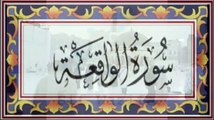 سُورَةُ الوَاقِعَة